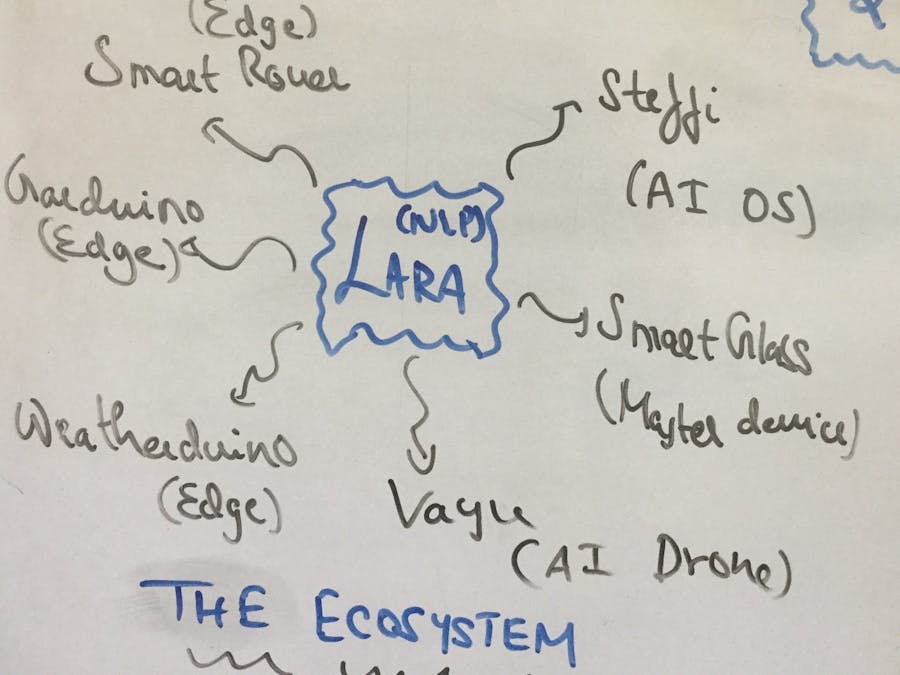 (Edge)
Smart Rover
Steffi
(AI OS)
Garduino
(Edge)
(NLP)
LARA
Smart Glass
(Master device)
Weatherduino
(Edge)
Vayu
(AI Drone)
THE ECOSYSTEM